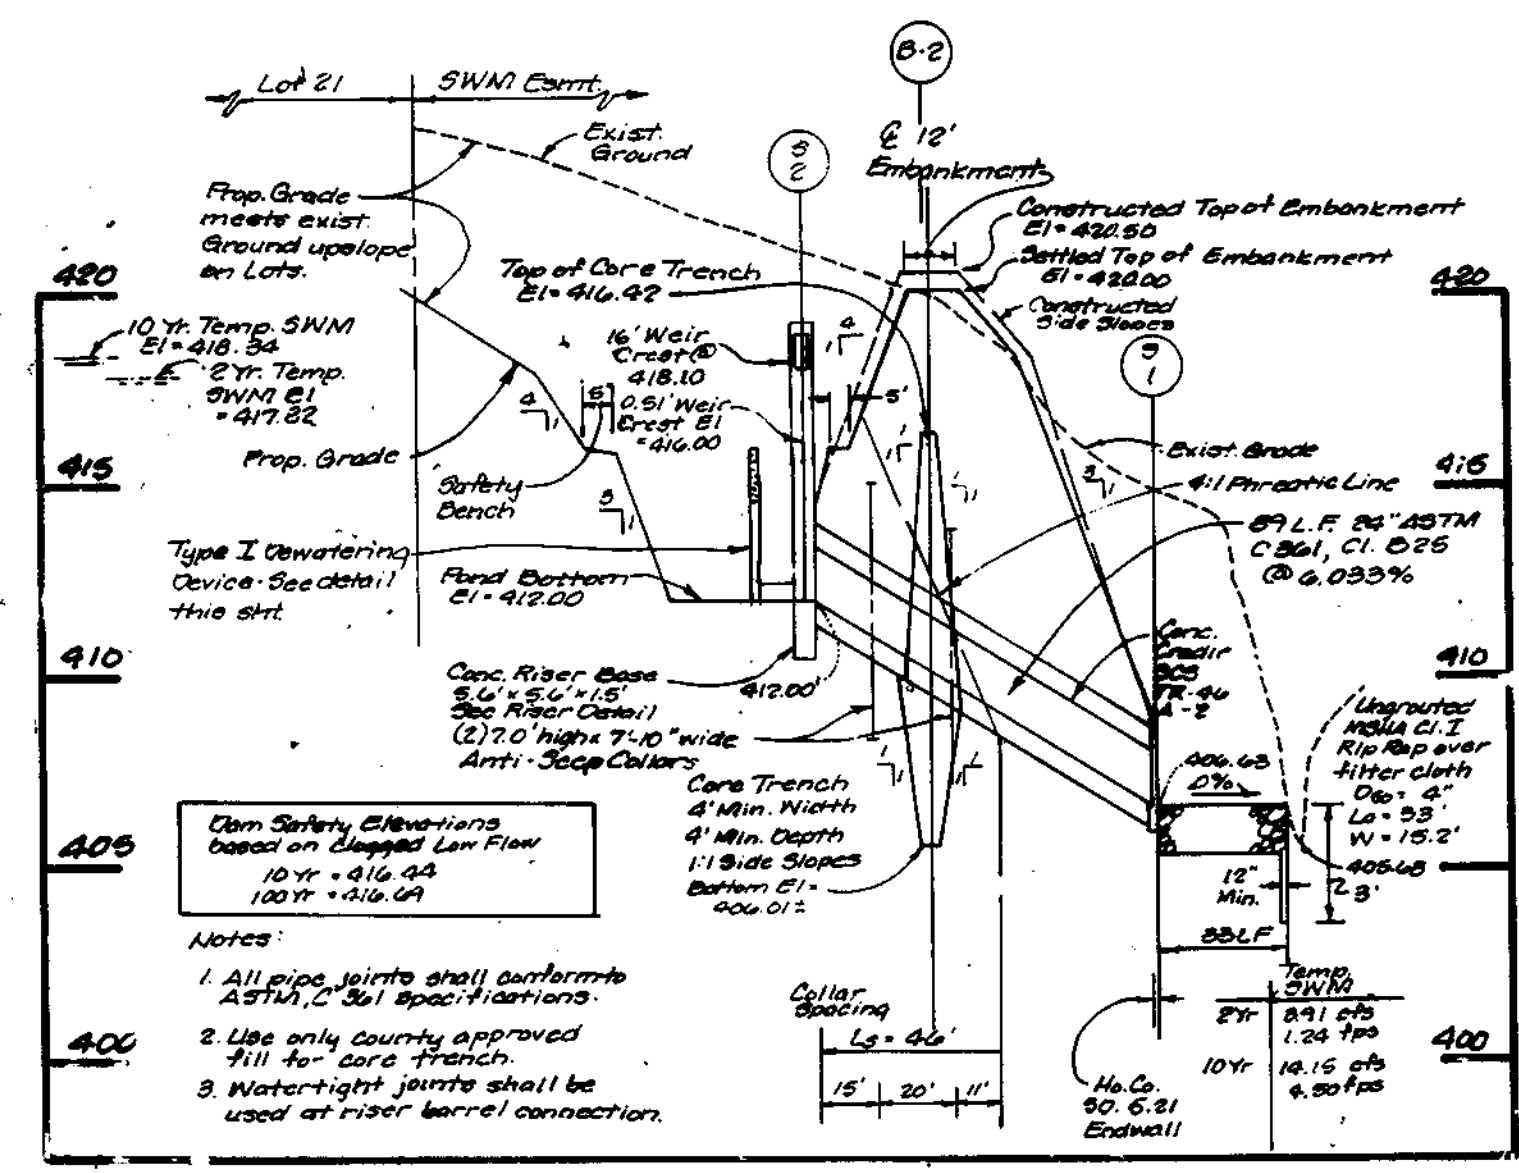 B-2
Lot 21
SWM Esmt.
S
2
Exist.
Ground
℄ 12'
Embankment
Prop. Grade
meets exist.
Ground upslope
on Lots.
Constructed Top of Embankment
El = 420.50
Settled Top of Embankment
El = 420.00
Constructed
Side Slopes
420
Top of Core Trench
El = 416.42
420
10 Yr. Temp. SWM
El = 418.34
2 Yr. Temp.
SWM El
= 417.22
16' Weir
Crest @
418.10
0.51' Weir
Crest El
= 416.00
4
1
S
1
4
1
5'
5'
Prop. Grade
Exist. Grade
415
415
Safety
Bench
3
1
1
1
1
1
3
1
4:1 Phreatic Line
89 L.F. 24" ASTM
C 361, Cl. B25
@ 6.033%
Type I Dewatering
Device - See detail
this sht.
Pond Bottom
El = 412.00
410
410
Conc.
Cradle
SCS
TR-46
A-2
Conc. Riser Base
5.6' x 5.6' x 1.5'
See Riser Detail
412.00'
(2) 7.0' high x 7'-10" wide
Anti-Seep Collars
Ungrouted
MSHA Cl. I
Rip Rap over
filter cloth
D50 = 4"
La = 33'
W = 15.2'
406.63
0%
1
1
1
1
Core Trench
4' Min. Width
4' Min. Depth
1:1 Side Slopes
Bottom El =
406.01±
405
405.63
12"
Min.
3'
Dam Safety Elevations
based on Clogged Low Flow
10 Yr = 416.44
100 Yr = 416.69
33 LF
Notes:
1. All pipe joints shall conform to
ASTM, C 361 specifications.
2. Use only county approved
fill for core trench.
3. Watertight joints shall be
used at riser barrel connection.
Collar
Spacing
Ls = 46'
15'
20'
11'
Temp.
SWM
2 Yr
3.91 cfs
1.24 fps
10 Yr
14.15 cfs
4.50 fps
400
400
Ho. Co.
SD. 5.21
Endwall